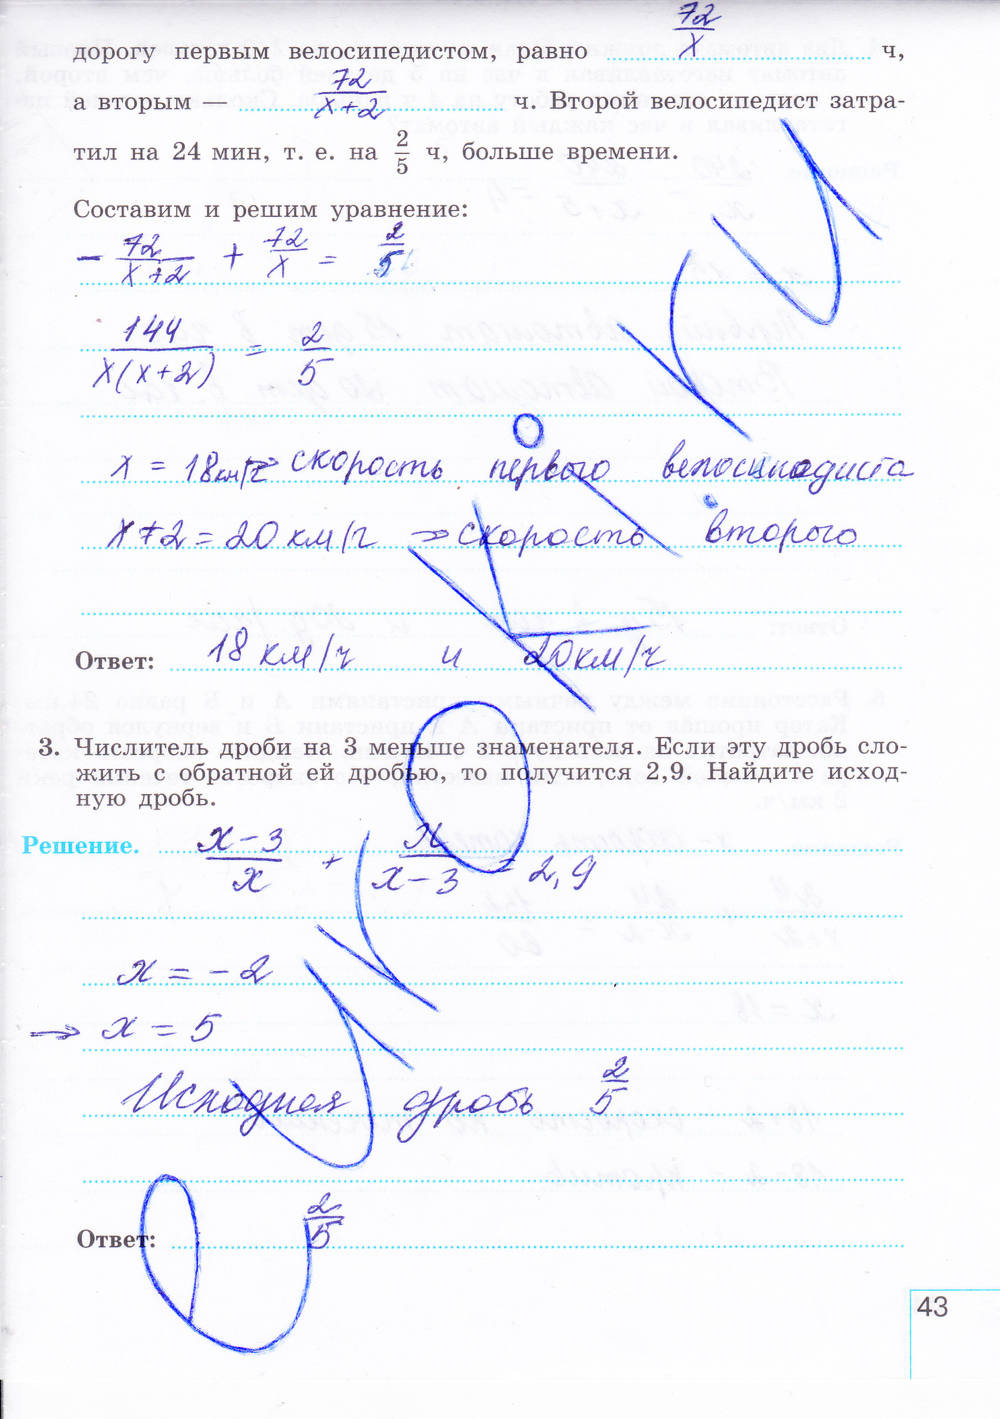 дорогу первым велосипедистом, равно 72/x ч,
а вторым — 72/x+2 ч. Второй велосипедист затра-
тил на 24 мин, т. е. на 2/5 ч, больше времени.
Составим и решим уравнение:
- 72/x+2 + 72/x = 2/5
144/x(x+2) = 2/5
x = 18 км/ч => скорость первого велосипедиста
x+2 = 20 км/ч => скорость второго
Ответ: 18 км/ч и 20 км/ч
3. Числитель дроби на 3 меньше знаменателя. Если эту дробь сло-
жить с обратной ей дробью, то получится 2,9. Найдите исход-
ную дробь.
Решение. x-3/x + x/x-3 = 2,9
x = -2
=> x = 5
Исходная дробь 2/5
Ответ: 2/5
43